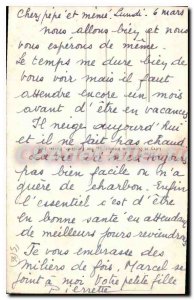 Cherz pépé et mémé. Lundi. 6 mars
nous allons biez et nous
vous esperons de même.
Le temps me dure biez de
vous voir mais il faut
attendre encore un mois
avant d'être en vacances
Il neige aujourd'hui
et il ne fait pas chaud
pas biez facile on n'a
guère de charbon. Enfin
l'essentiel c'est d'être
en bonne santé en attendez
de meilleurs jours reviendrez
Je vous embrasse des
miliers de fois, Marcel se
joint à moi Votre petite fille
Pierrette